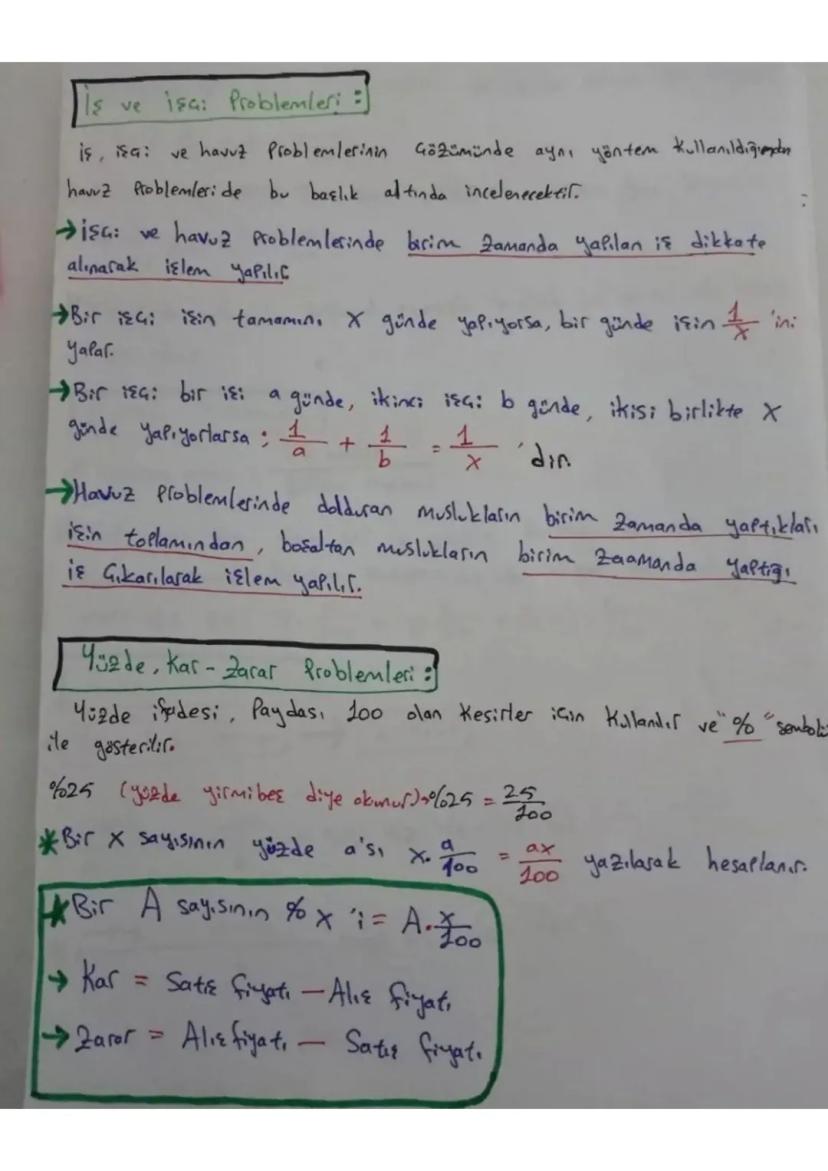 İş ve işçi Problemleri :
iş, işçi ve havuz Problemlerinin Çözümünde aynı yöntem kullanıldığından
havuz Problemleri de bu başlık altında incelenecektir.
→ işçi ve havuz Problemlerinde birim zamanda yapılan iş dikkate
alınarak işlem yapılır
→ Bir işçi işin tamamını x günde yapıyorsa, bir günde işin 1/x 'ini
yapar.
→ Bir işçi bir işi a günde, ikinci işçi b günde, ikisi birlikte x
günde yapıyorlarsa ; 1/a + 1/b = 1/x 'dir.
→ Havuz Problemlerinde dolduran muslukların birim zamanda yaptıkları
işin toplamından, boşaltan muslukların birim zaamanda yaptığı
iş çıkarılarak işlem yapılır.
Yüzde, Kar - Zarar Problemleri :
Yüzde ifadesi, Paydası 100 olan kesirler için kullanılır ve "%" sembolü
ile gösterilir.
%25 (yüzde yirmibeş diye okunur) → %25 = 25/100
* Bir x sayısının yüzde a'sı x. a/100 = ax/100 yazılarak hesaplanır.
* Bir A sayısının % x 'i = A. x/100
→ Kar = Satış fiyatı — Alış fiyatı
→ Zarar = Alış fiyatı — Satış fiyatı